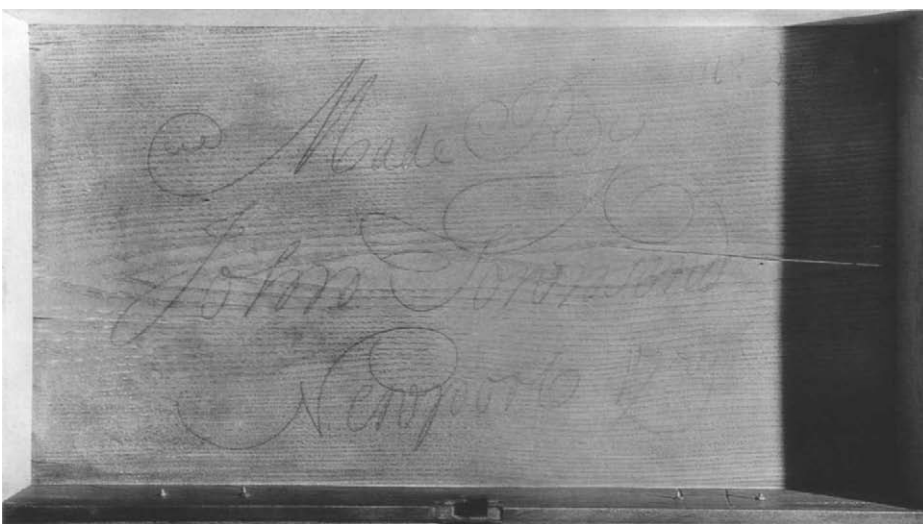 Made By
John Townsend
Newport R I